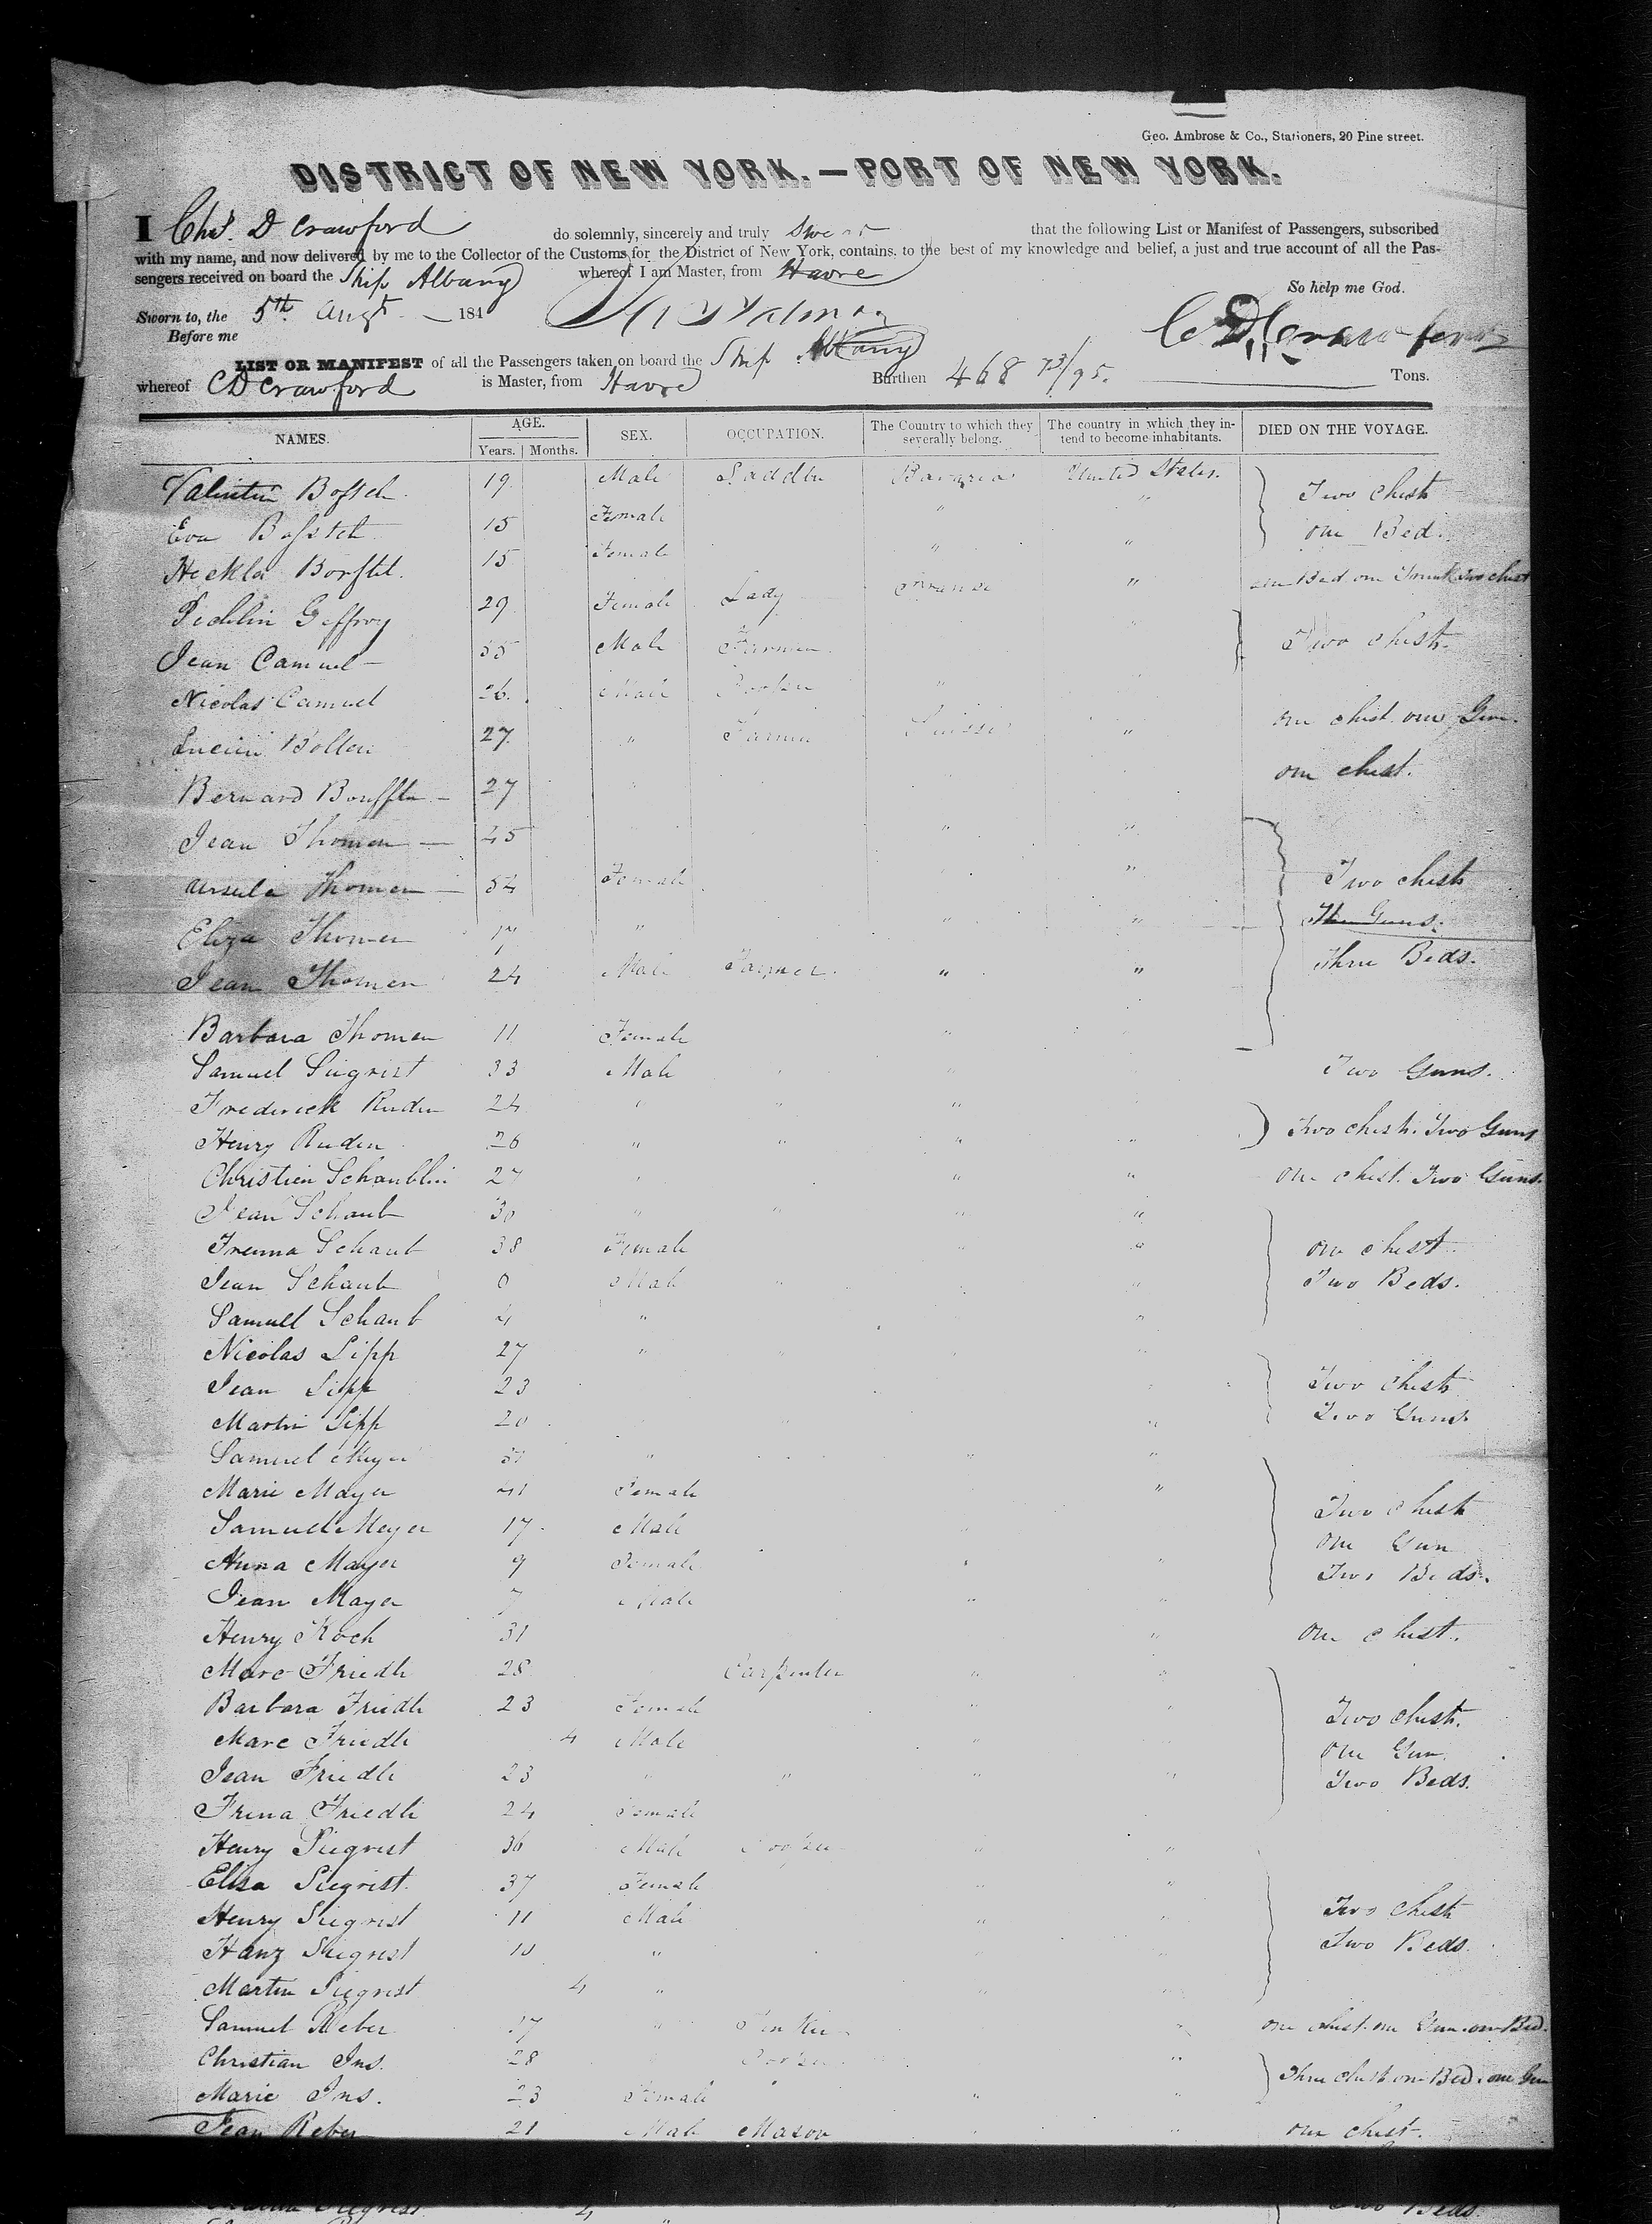 Geo. Ambrose & Co., Stationers, 20 Pine street.
DISTRICT OF NEW YORK.—PORT OF NEW YORK.
I Chs. D Crawford do solemnly, sincerely and truly swear that the following List or Manifest of Passengers, subscribed
with my name, and now delivered by me to the Collector of the Customs for the District of New York, contains. to the best of my knowledge and belief, a just and true account of all the Pas-
sengers received on board the Ship Albany whereof I am Master, from Havre
So help me God.
Sworn to, the 5th Augt 184
Before me
C D Crawford
LIST OR MANIFEST of all the Passengers taken on board the Ship Albany
whereof C D Crawford is Master, from Havre Burthen 468 73/95. Tons.
NAMES. AGE. Years. Months. SEX. OCCUPATION. The Country to which they severally belong. The country in which they intend to become inhabitants. DIED ON THE VOYAGE.
Valentin 19 Male Saddler Bavaria United States. Two chest
Eva 15 Female " " one Bed.
Heckla 15 Female " "
Geffroy 29 Female Lady " one Bed one Trunk two chest
Jean Camuel 55 Male Farmer Two chest.
Nicolas Camuel 26. Male Cooper "
27 " Farmer " one chest one Gun.
Bernard 27 one chest.
Jean Thomen 45 " "
Ursula Thomen 54 Female " Two chest
Eliza Thomen 17 " " " Guns.
Jean Thomen 24 Male Farmer " " Three Beds.
Barbara Thomen 11 Female
Samuel Siegrist 33 Male Two Guns.
Frederick Rudin 24 " " "
Henry Rudin 26 " " " " Two chest. Two Guns
Christien Schaublin 27 " " one chest. Two Guns.
Jean Schaub 30 " " " "
Schaub 38 Female " " one chest
Jean Schaub 0 Male " " Two Beds.
Samuel Schaub 4 " "
Nicolas Sipp 27 " "
Jean Sipp 23 Two chest
Martin Sipp 20 " Two Guns.
Samuel Meyer " " "
Marie Mayer 41 Female " Two chest
Samuel Meyer 17 Male one Gun
Anna Mayer 9 Female Two Beds.
Jean Mayer 7 Male " "
Henry Koch 31 " one chest.
Marc Friedli 28 Carpenter " "
Barbara Friedli 23 Female " " Two chest.
Marc Friedli 4 Male " one Gun
Jean Friedli 23 " " " " Two Beds.
Friedli 24 Female
Henry Siegrist 36 Male Cooper " "
Elisa Siegrist 37 Female " "
Henry Siegrist 11 Male " Two chest
Hanz Siegrist 10 " Two Beds
Martin Siegrist 4 " "
Samuel Reber " " one chest one Gun one Bed.
Christian Ins. 28 Cooper "
Marie Ins. 23 Female " " Three chest one Bed one Gun
Jean Reber 21 Male Mason " " one chest.
Siegrist 4 " Two Beds